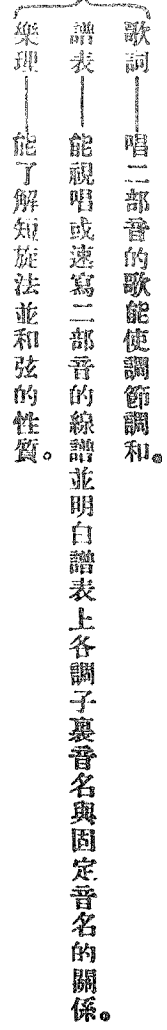 歌詞——唱二部音的歌能使調節調和。
譜表——能視唱或速寫二部音的線譜並明白譜表上各調子裏音名與固定音名的關係。
樂理——能了解短旋法並和弦的性質。